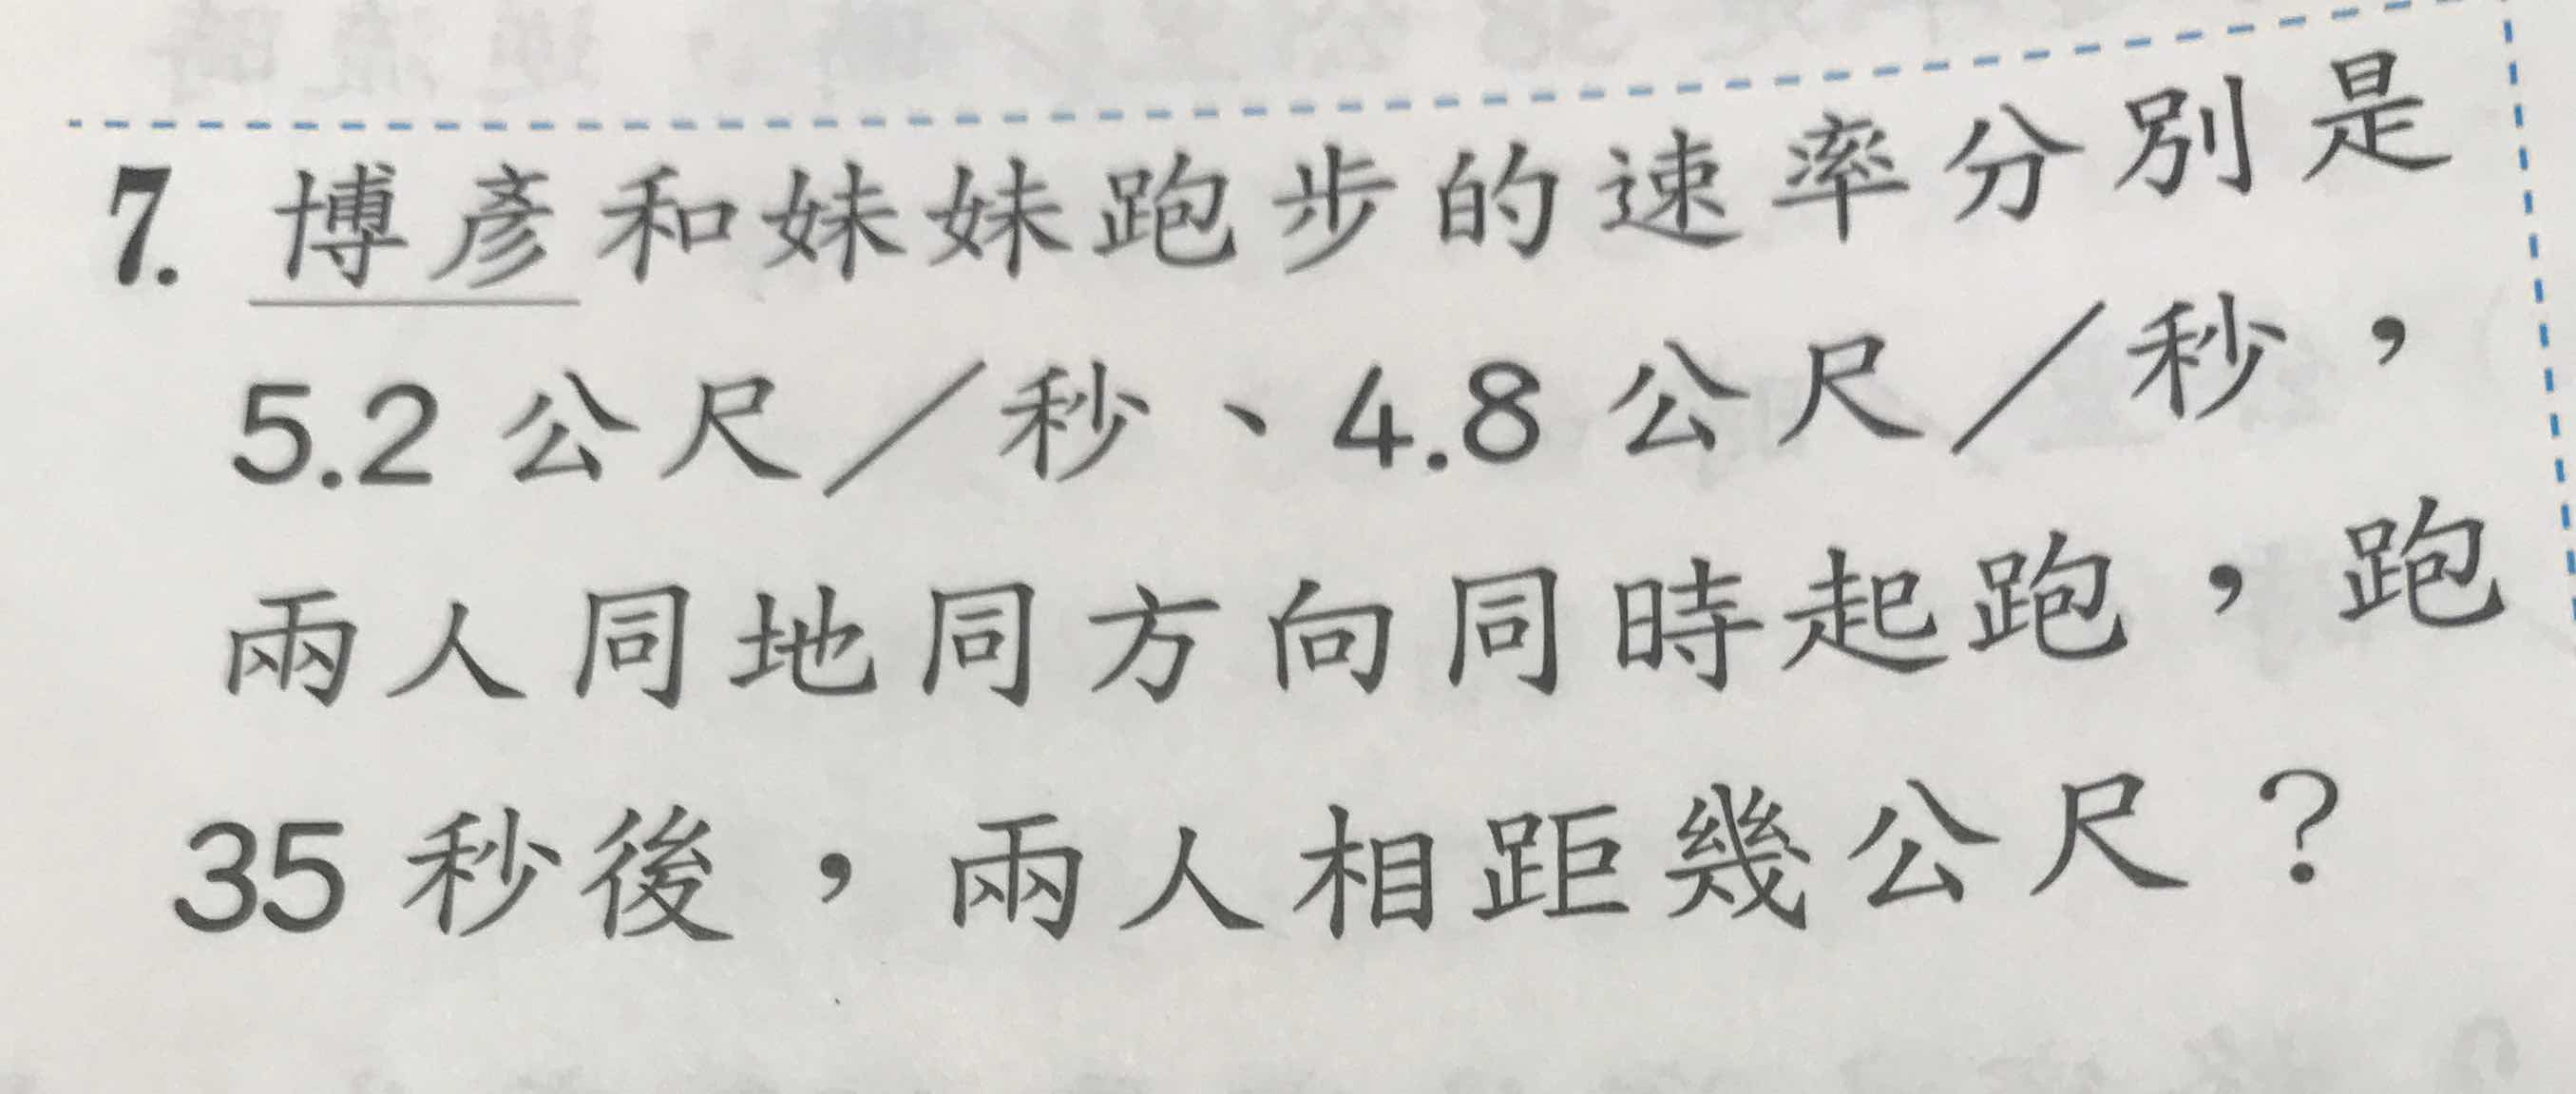 7. 博彥和妹妹跑步的速率分別是
5.2 公尺／秒、4.8 公尺／秒，
兩人同地同方向同時起跑，跑
35 秒後，兩人相距幾公尺？